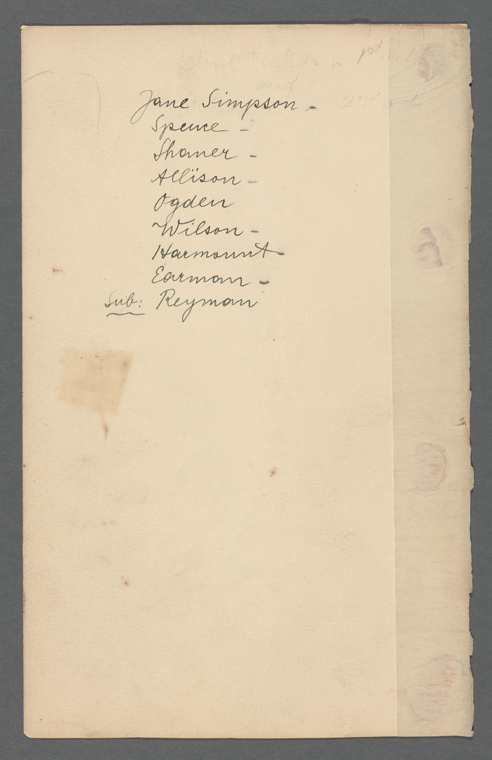 Jane Simpson -
Spence -
Shaner -
Allison -
Ogden
Wilson -
Harmount -
Earman -
Sub: Reyman